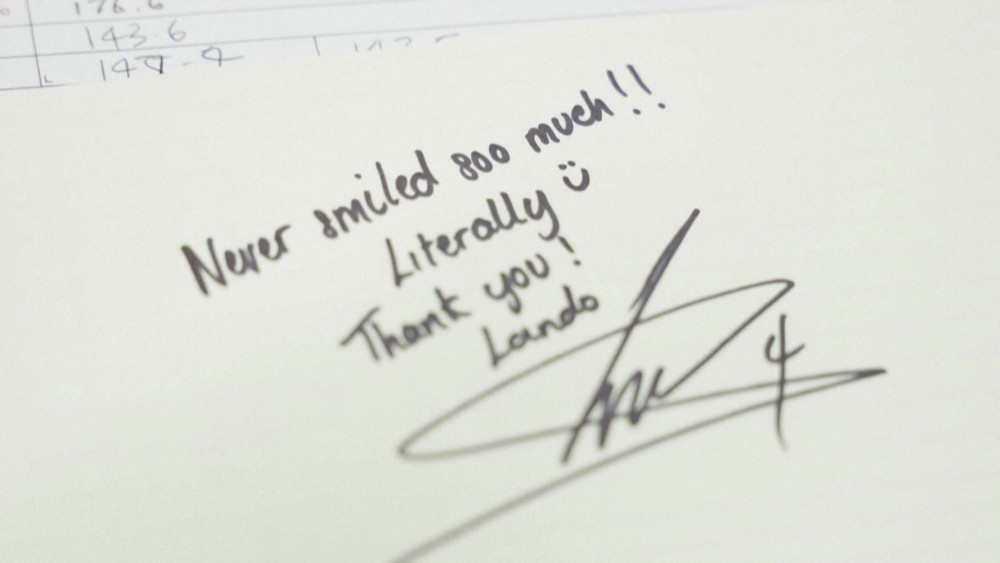 176.6
143.6
147.4
Never smiled sooo much!!
Literally ü
Thank you!
Lando
4